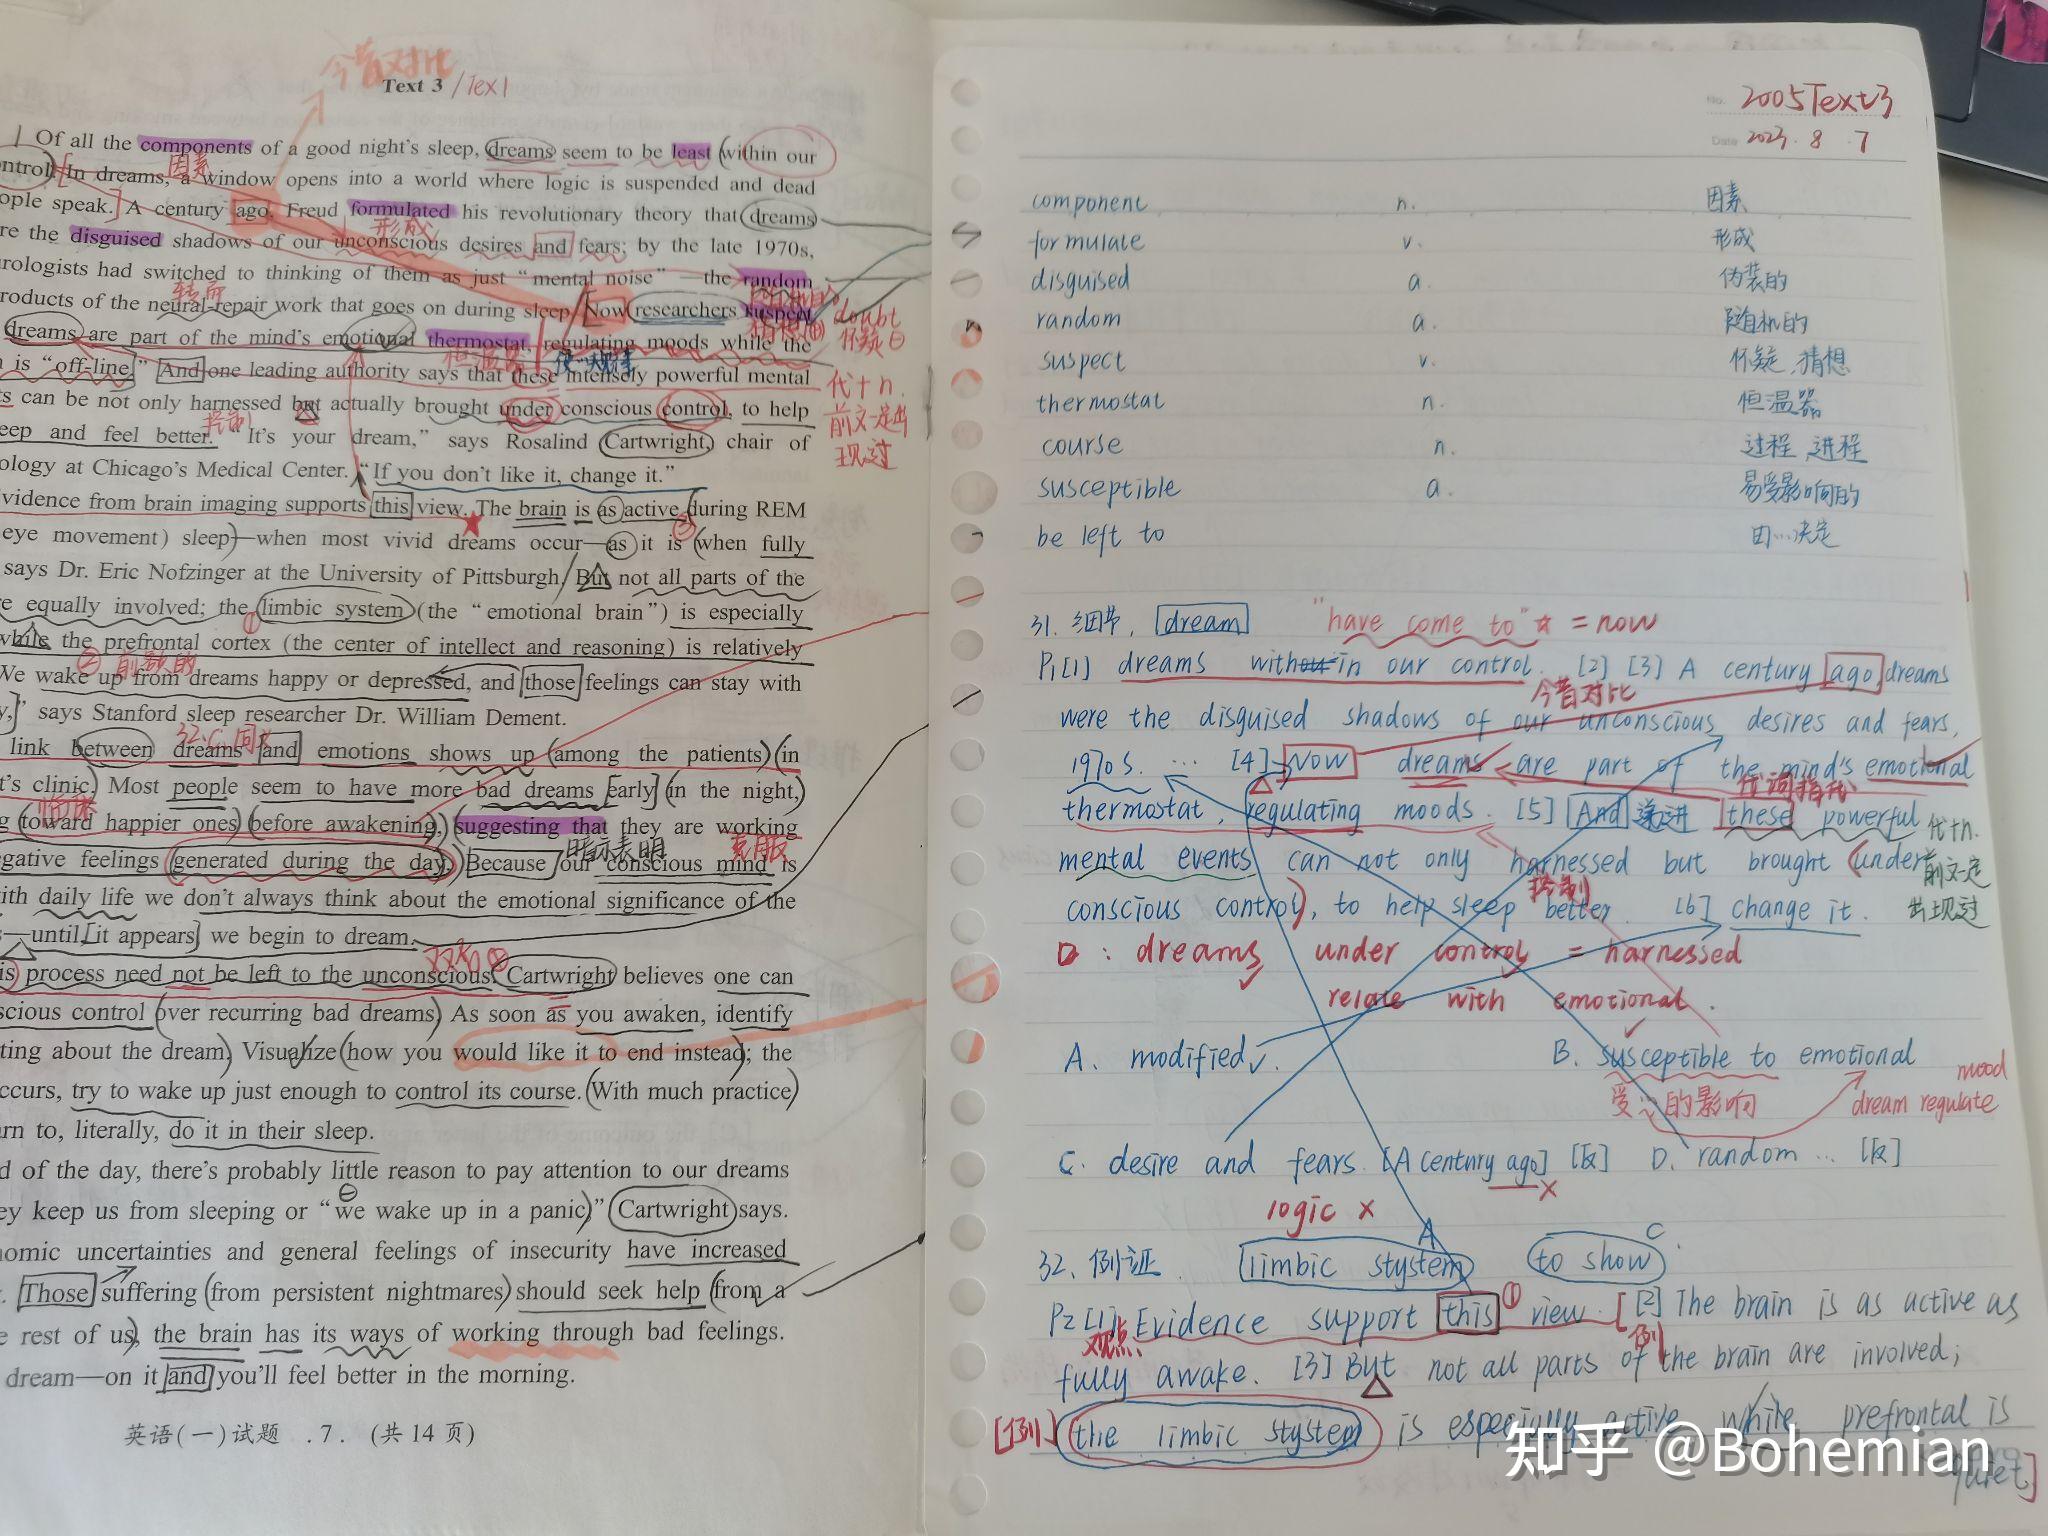 今昔对比
Text 3 /Tex1
1 Of all the components of a good night's sleep, dreams seem to be least (within our
因素
ntrol. [In dreams, a window opens into a world where logic is suspended and dead
ople speak.] A century ago, Freud formulated his revolutionary theory that dreams
形成
re the disguised shadows of our unconscious desires and fears; by the late 1970s,
rologists had switched to thinking of them as just “mental noise” —the random
转而
roducts of the neural-repair work that goes on during sleep. Now researchers suspect
doubt
怀疑
dreams are part of the mind's emotional thermostat, regulating moods while the
恒温器
n is “off-line.” And one leading authority says that these intensely powerful mental
代+n.
ts can be not only harnessed but actually brought under conscious control, to help
前文一定出
控制
eep and feel better. “It's your dream,” says Rosalind Cartwright, chair of
现过
ology at Chicago's Medical Center. “If you don't like it, change it.”
vidence from brain imaging supports this view. The brain is as active during REM
③
eye movement) sleep)—when most vivid dreams occur—as it is (when fully
says Dr. Eric Nofzinger at the University of Pittsburgh. But not all parts of the
re equally involved; the limbic system (the “emotional brain”) is especially
①
while the prefrontal cortex (the center of intellect and reasoning) is relatively
②
We wake up from dreams happy or depressed, and those feelings can stay with
y,]” says Stanford sleep researcher Dr. William Dement.
link between dreams and emotions shows up (among the patients) (in
t's clinic) Most people seem to have more bad dreams [early] (in the night,)
临床
g (toward happier ones) (before awakening,) suggesting that they are working
暗示表明
克服
egative feelings (generated during the day.) Because our conscious mind is
ith daily life we don't always think about the emotional significance of the
—until [it appears] we begin to dream.
is process need not be left to the unconscious. Cartwright believes one can
scious control (over recurring bad dreams) As soon as you awaken, identify
ting about the dream) Visualize (how you would like it to end instead); the
ccurs, try to wake up just enough to control its course. (With much practice)
rn to, literally, do it in their sleep.
d of the day, there's probably little reason to pay attention to our dreams
ey keep us from sleeping or “we wake up in a panic)” Cartwright says.
nomic uncertainties and general feelings of insecurity have increased
. Those suffering (from persistent nightmares) should seek help (from a
e rest of us), the brain has its ways of working through bad feelings.
dream—on it and you'll feel better in the morning.
英语(一)试题 .7. (共14页)
No. 2005Text3
Date 2023. 8 .7
component n. 因素
formulate v. 形成
disguised a. 伪装的
random a. 随机的
suspect v. 怀疑、猜想
thermostat n. 恒温器
course n. 过程、进程
susceptible a. 易受影响的
be left to 由…决定
31. 细节. dream "have come to" ☆ = now
P1[1] dreams within our control. [2] [3] A century ago dreams
今昔对比
were the disguised shadows of our unconscious desires and fears,
1970s. ... [4] Now dreams are part of the mind's emotional
代词指代
thermostat, regulating moods. [5] And 递进 these powerful
代+n.
mental events can not only harnessed but brought (under
前文一定
控制
conscious control), to help sleep better. [6] change it.
出现过
D: dreams under control = harnessed
relate with emotional.
A. modified✓. B. susceptible to emotional
受…的影响
mood
dream regulate
C. desire and fears. [A century ago] [反] D. random ... [反]
logic ×
A C
32. 例证. limbic stystem to show.
P2 [1] Evidence support this ① view. [[2] The brain is as active as
观点
例
fully awake. [3] But not all parts of the brain are involved;
[例] the limbic stystem is especially active while prefrontal is
quiet]
知乎 @Bohemian